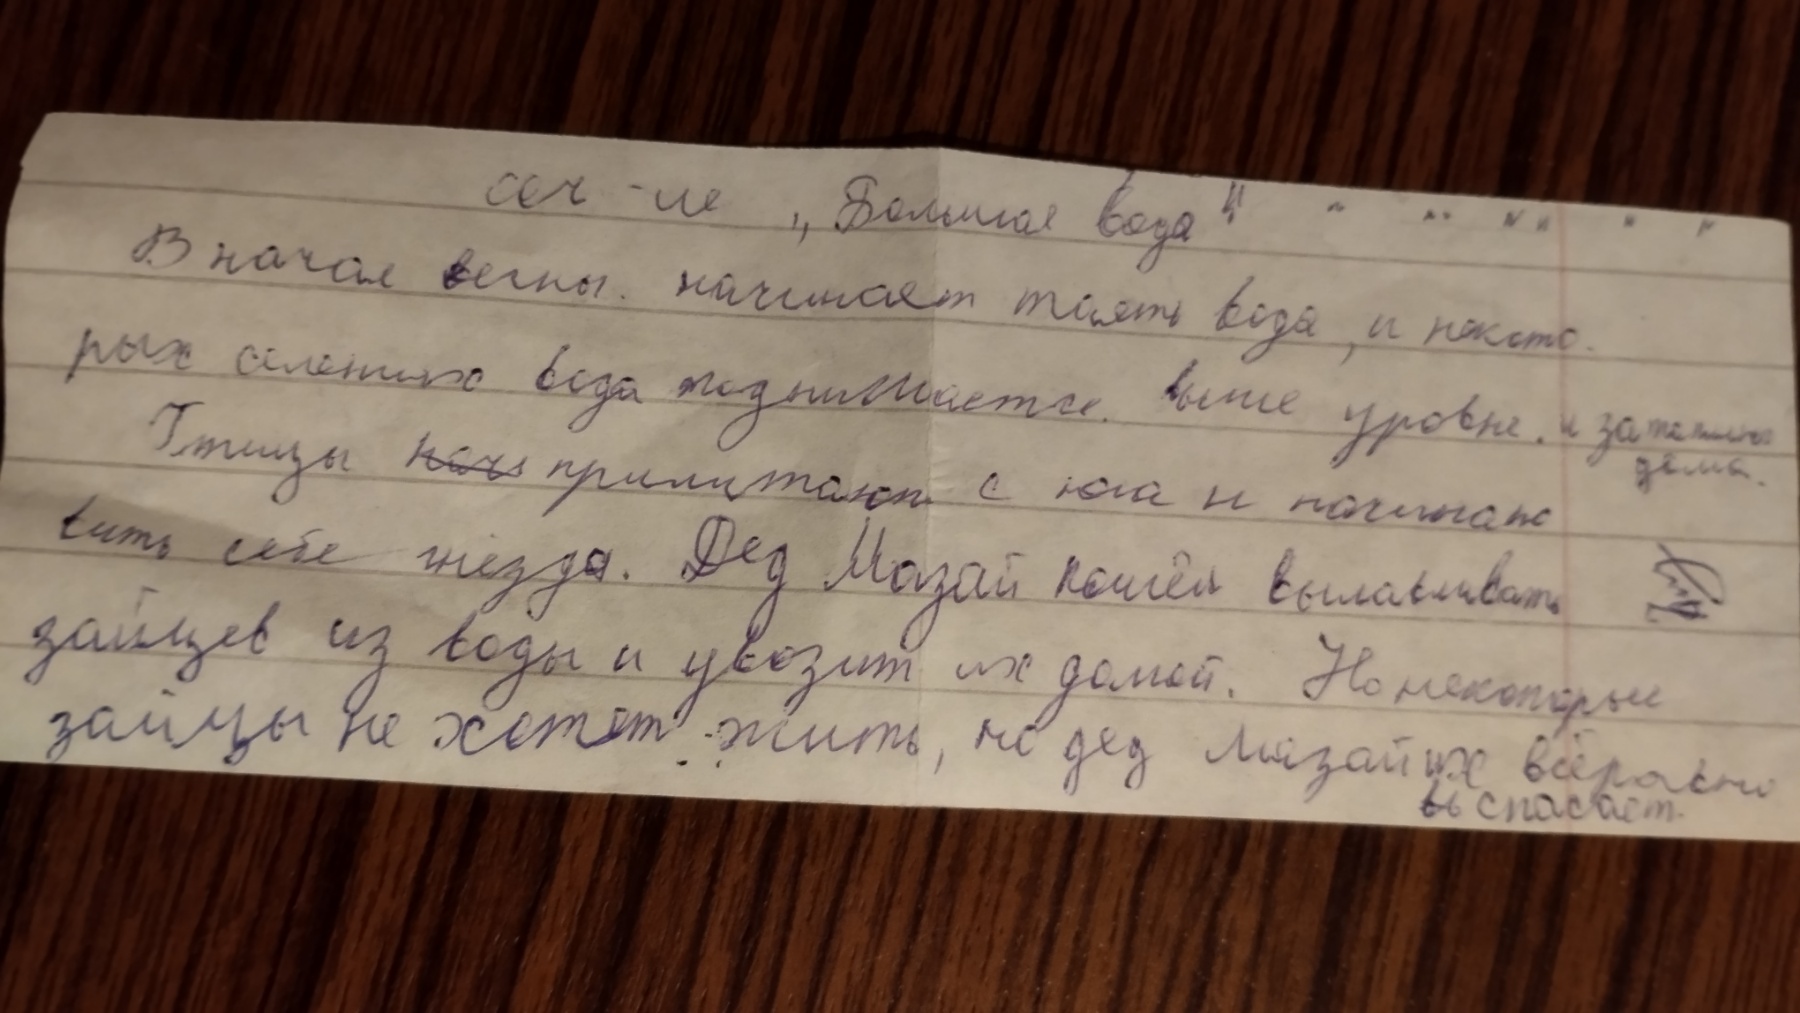 соч-ие „Большая вода"
В начале весны. начинает таять вода, и некото-
рых селениях вода поднимается. выше уровне. и затопило
дома.
Птицы нач прилитают с юга и начинают
вить себе гнёзда. Дед Мазай пошёл вылавливать
зайцев из воды и увозит их домой. Но некоторые
зайцы не хотят жить, но дед Мазай их всёравно
выспасает.